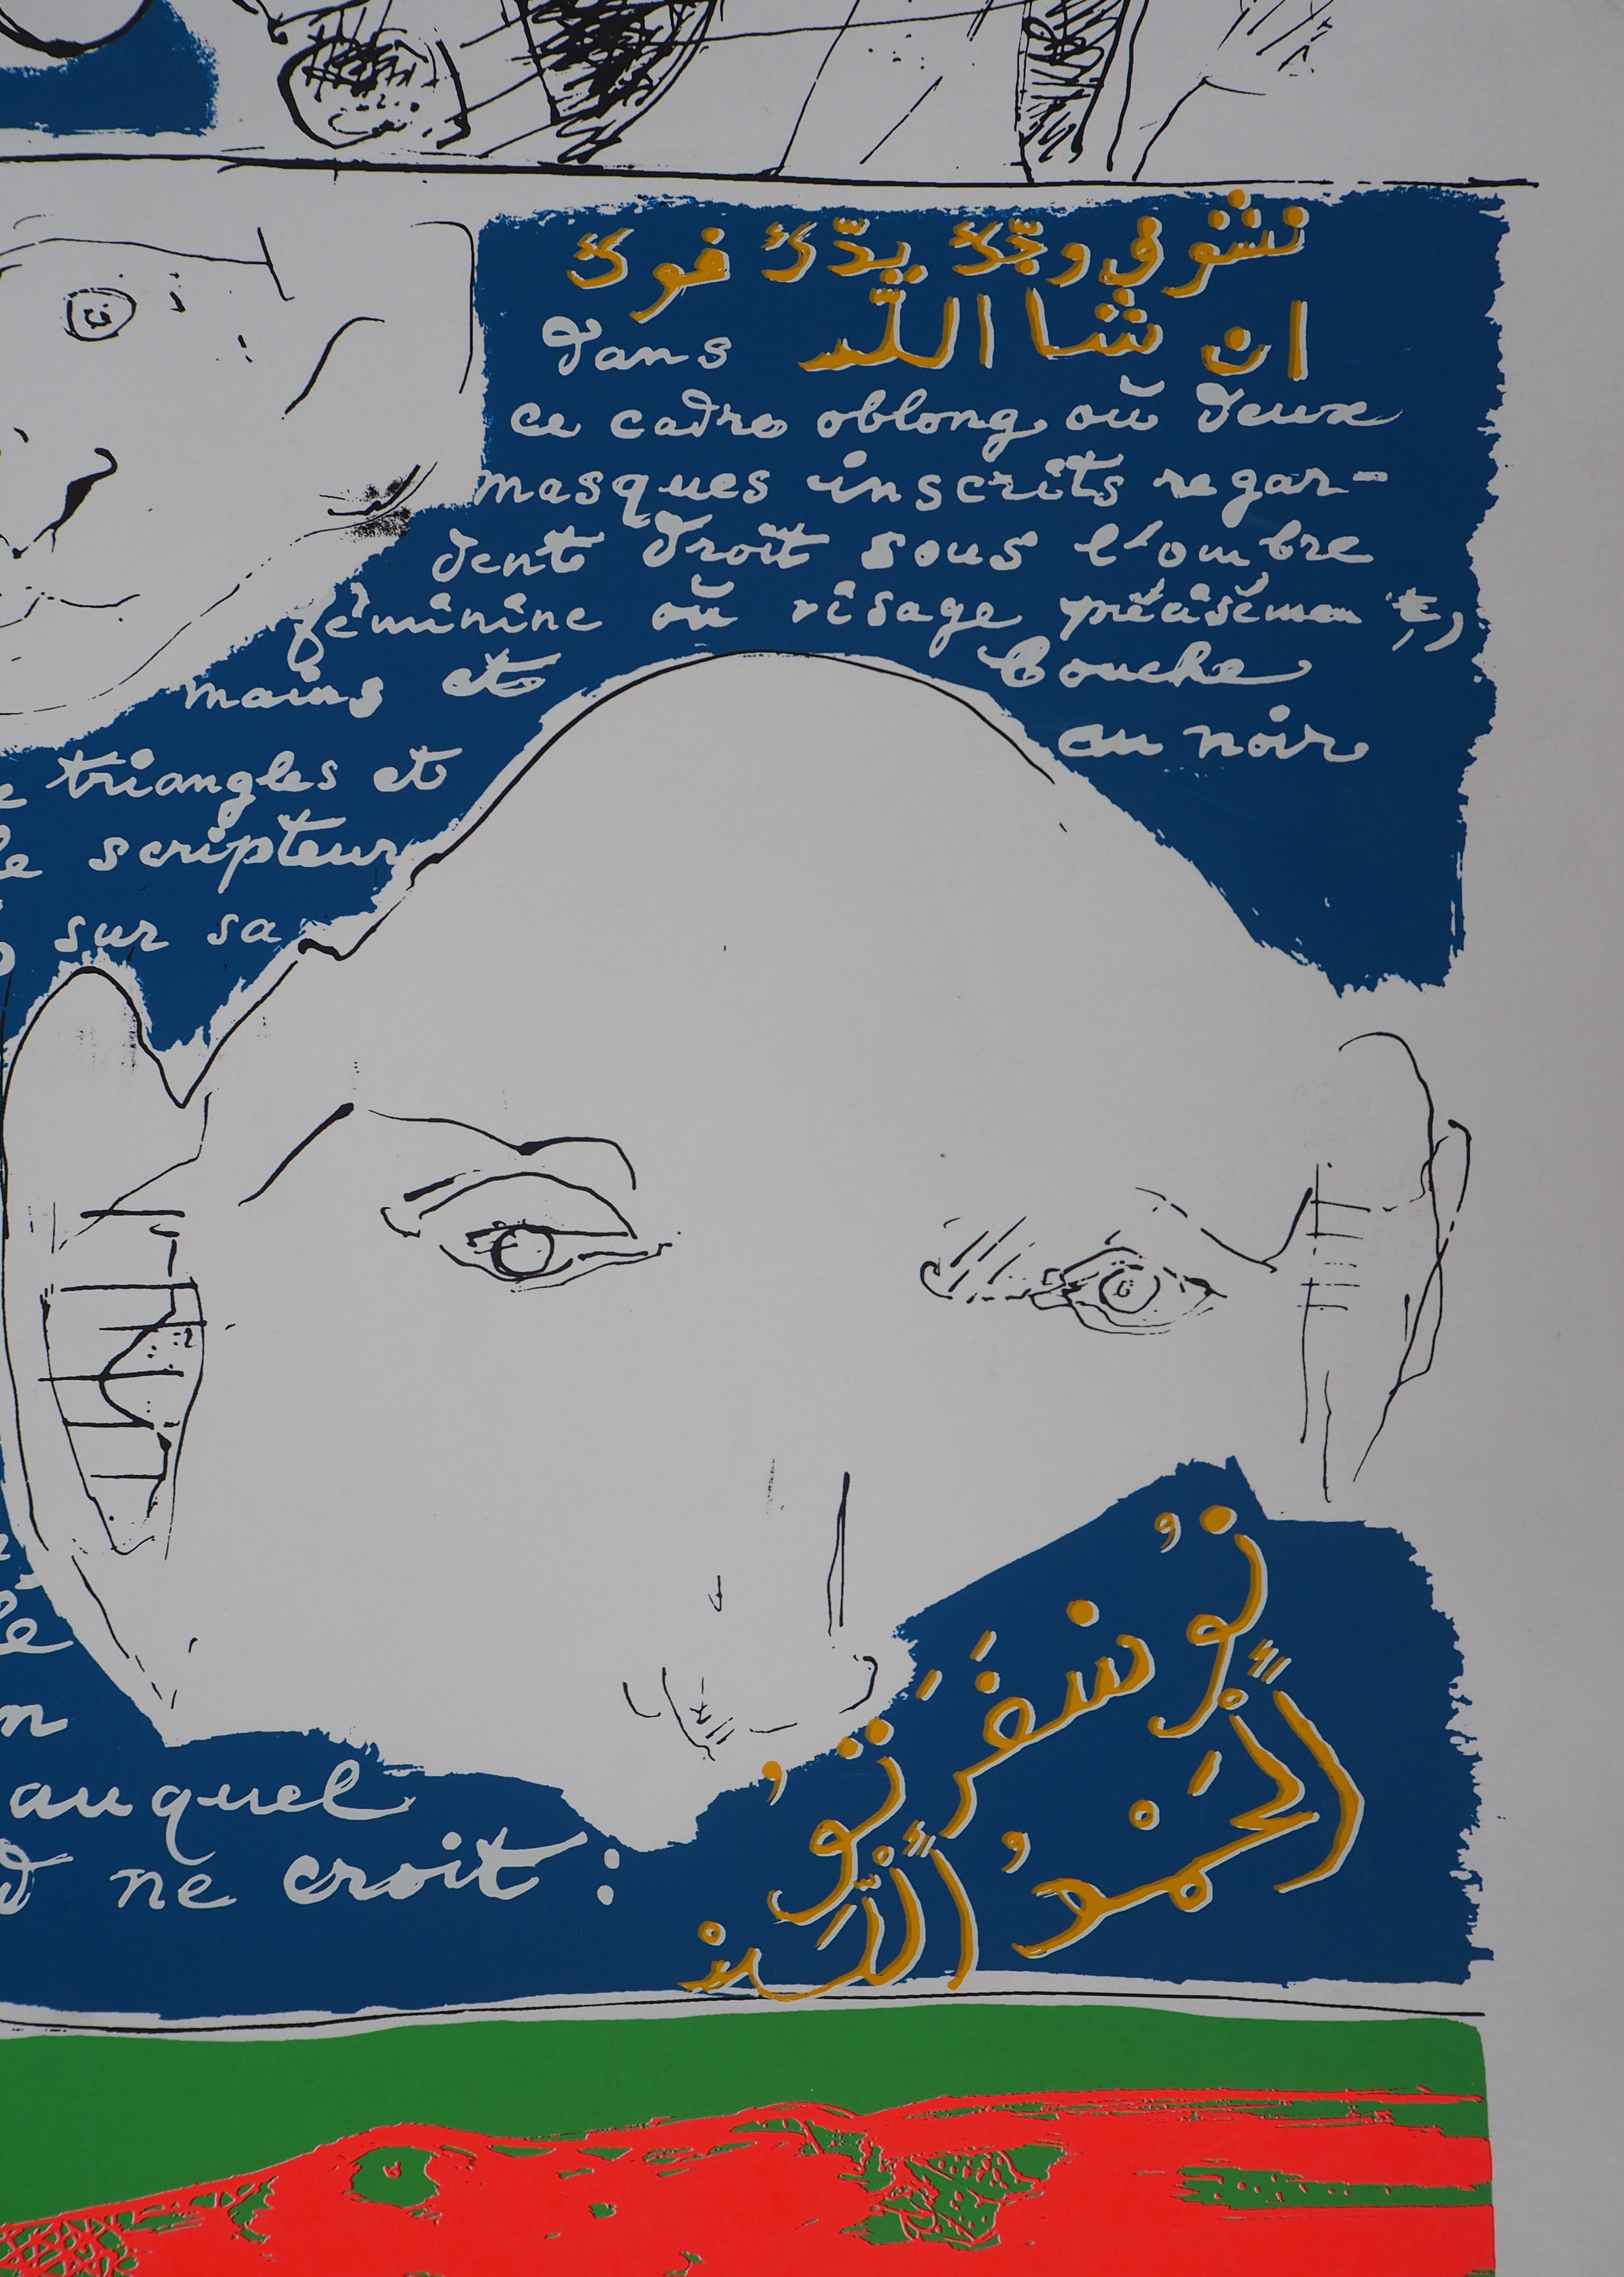 نشوفي وجّك يدّك فوك
ان شا اللّه dans
ce cadre oblong où deux
masques inscrits regar-
dent droit sous l'ombre
féminine où visage précisément,
mains et bouche
au noir
triangles et
le scripteur
sur sa
auquel
ne croit :
الْحَمْدُ اللّهْ